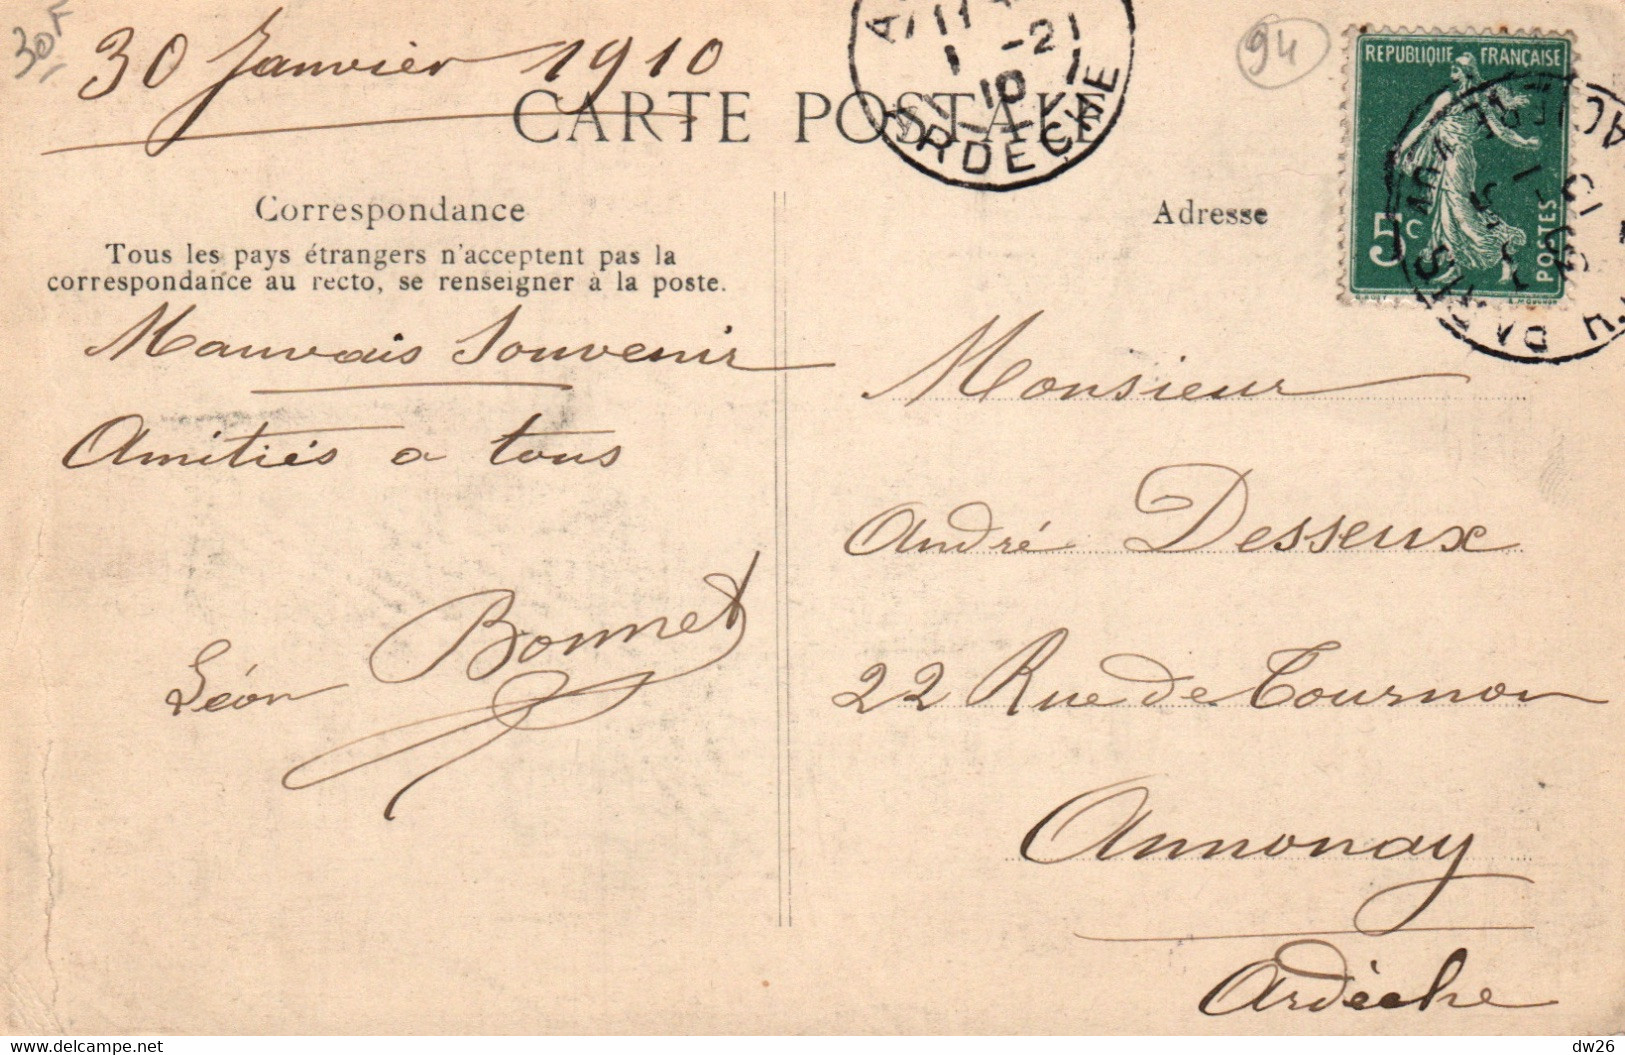 30F
30 Janvier 1910
94
CARTE POSTALE
ARDECHE
11
1 -2
10
REPUBLIQUE FRANÇAISE
5c
POSTES
PARIS
Correspondance
Tous les pays étrangers n'acceptent pas la
correspondance au recto, se renseigner à la poste.
Mauvais Souvenir
Amitiés a tous
Léon Bonnet
Adresse
Monsieur
André Desseux
22 Rue de Tournon
Annonay
Ardèche
www.delcampe.net
dw26